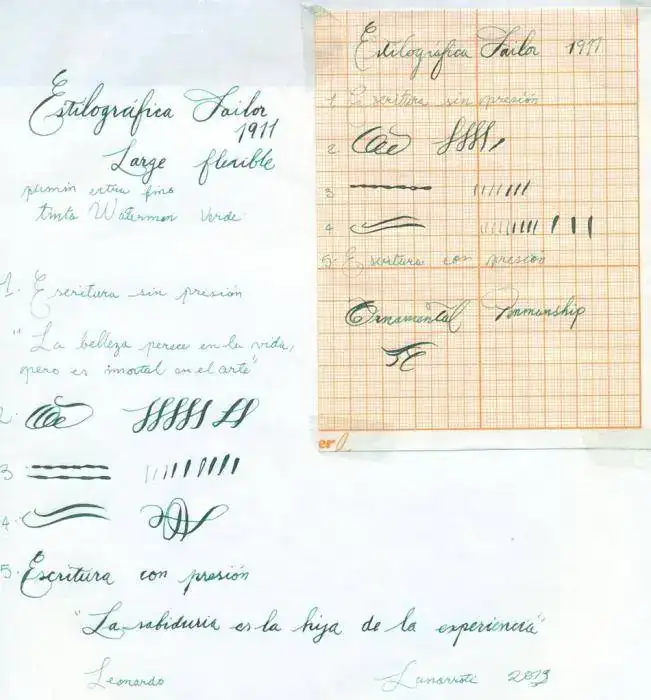 Estilográfica Sailor
1911
Large flexible
plumín extra fino
tinta Waterman Verde
1. Escritura sin presión
"La belleza perece en la vida,
pero es imortal en el arte"
2.
3
4.
5. Escritura con presión
"La sabiduria es la hija de la experiencia"
Leonardo
Lanarrote 2013
Estilográfica Sailor 1911
1 Escritura sin presión
2
3
4
5. Escritura con presión
Ornamental Penmanship
er